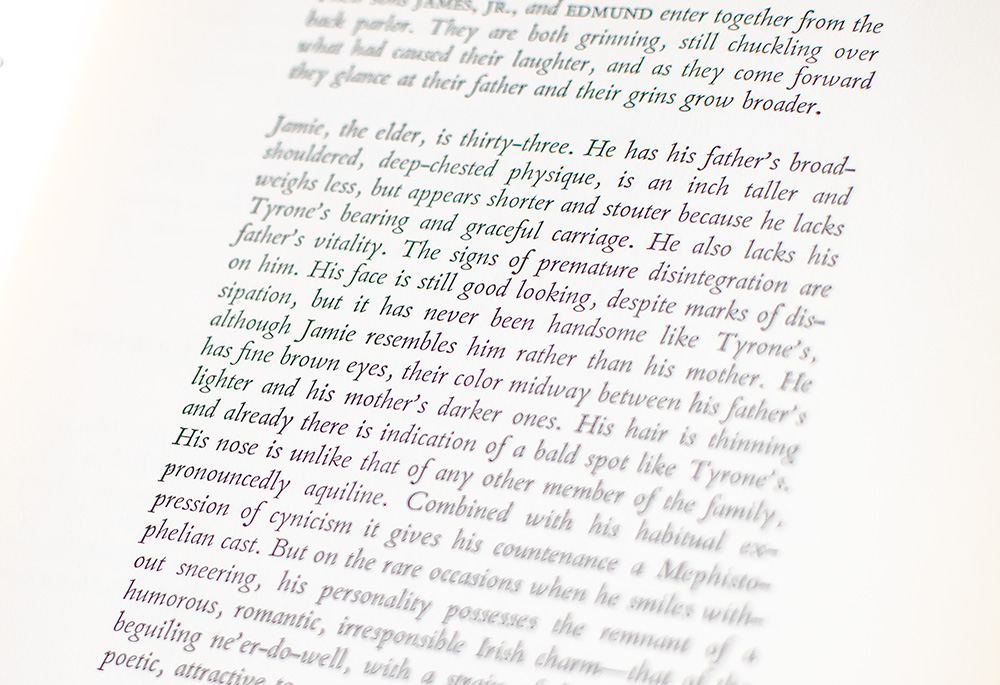 sons JAMES, JR., and EDMUND enter together from the
back parlor. They are both grinning, still chuckling over
what had caused their laughter, and as they come forward
they glance at their father and their grins grow broader.
Jamie, the elder, is thirty-three. He has his father's broad-
shouldered, deep-chested physique, is an inch taller and
weighs less, but appears shorter and stouter because he lacks
Tyrone's bearing and graceful carriage. He also lacks his
father's vitality. The signs of premature disintegration are
on him. His face is still good looking, despite marks of dis-
sipation, but it has never been handsome like Tyrone's,
although Jamie resembles him rather than his mother. He
has fine brown eyes, their color midway between his father's
lighter and his mother's darker ones. His hair is thinning
and already there is indication of a bald spot like Tyrone's.
His nose is unlike that of any other member of the family,
pronouncedly aquiline. Combined with his habitual ex-
pression of cynicism it gives his countenance a Mephisto-
phelian cast. But on the rare occasions when he smiles with-
out sneering, his personality possesses the remnant of a
humorous, romantic, irresponsible Irish charm—that of the
beguiling ne'er-do-well, with a
poetic, attractive